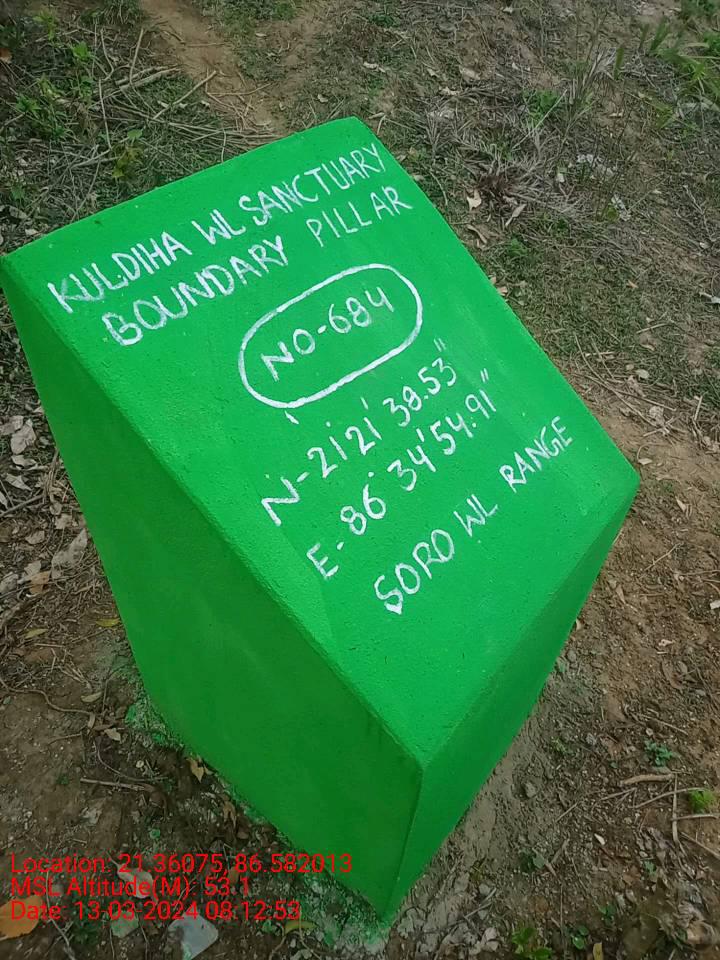 KULDIHA WL SANCTUARY
BOUNDARY PILLAR
NO-684
N-21°21'38.53"
E-86°34'54.91"
SORO WL RANGE
Location: 21.36075, 86.582013
MSL Altitude(M): 53.1
Date: 13-03-2024 08:12:53